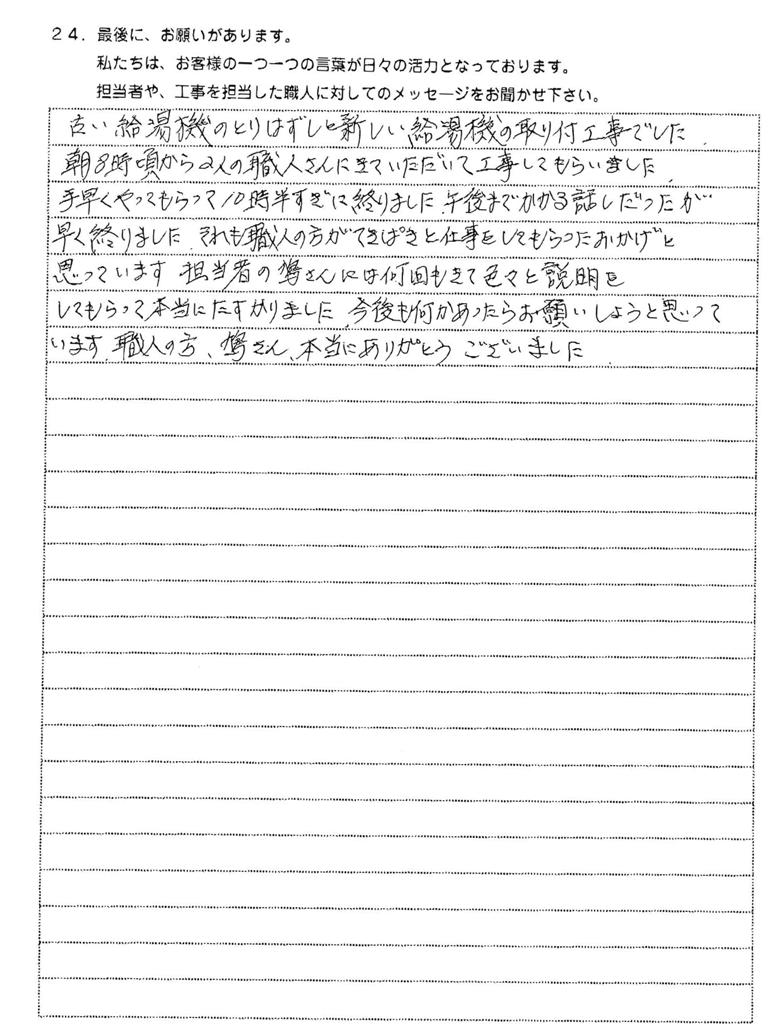 24．最後に、お願いがあります。
私たちは、お客様の一つ一つの言葉が日々の活力となっております。
担当者や、工事を担当した職人に対してのメッセージをお聞かせ下さい。
古い給湯機のとりはずしと新しい給湯機の取り付工事でした.
朝8時頃から2人の職人さんにきていただいて工事してもらいました.
手早くやってもらって10時半すぎに終りました.午後までかかる話しだったが
早く終りました それも職人の方がてきぱきと仕事をしてもらったおかげと
思っています 担当者の さんには何回もきて色々と説明を
してもらって本当にたすかりました.今後も何かあったらお願いしようと思って
います.職人の方、 さん、本当にありがとうございました